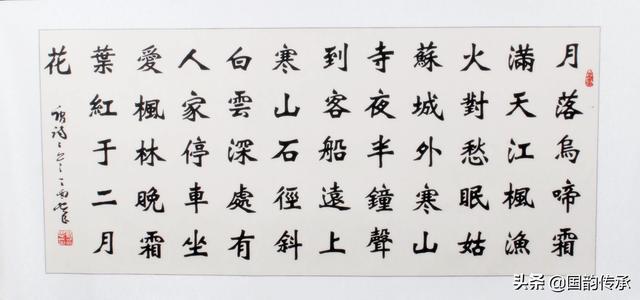 月落烏啼霜
滿天江楓漁
火對愁眠姑
蘇城外寒山
寺夜半鐘聲
到客船遠上
寒山石徑斜
白雲深處有
人家停車坐
愛楓林晚霜
葉紅于二月
花
头条 @国韵传承